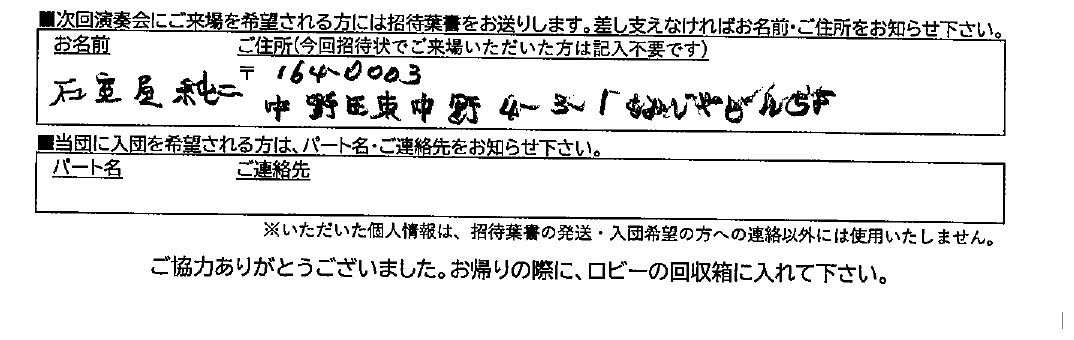 ■次回演奏会にご来場を希望される方には招待葉書をお送りします。差し支えなければお名前・ご住所をお知らせ下さい。
お名前 ご住所(今回招待状でご来場いただいた方は記入不要です)
〒 164-0003
石重屋 純二 中野区東中野 4-3-1
■当団に入団を希望される方は、パート名・ご連絡先をお知らせ下さい。
パート名 ご連絡先
※いただいた個人情報は、招待葉書の発送・入団希望の方への連絡以外には使用いたしません。
ご協力ありがとうございました。お帰りの際に、ロビーの回収箱に入れて下さい。